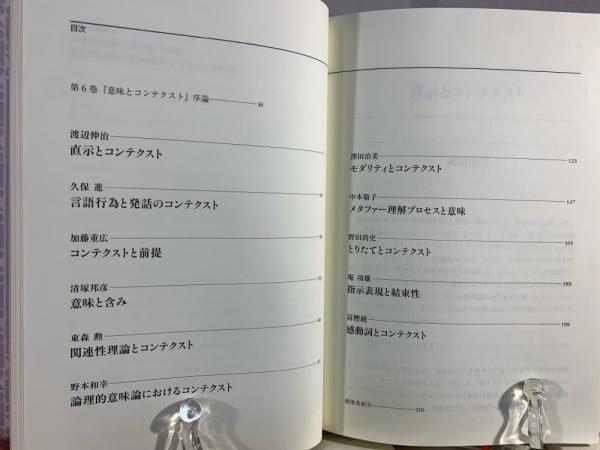 目次
第6巻『意味とコンテクスト』序論 iii
渡辺伸治
直示とコンテクスト
久保 進
言語行為と発話のコンテクスト
加藤重広
コンテクストと前提
清塚邦彦
意味と含み
東森 勲
関連性理論とコンテクスト
野本和幸
論理的意味論におけるコンテクスト
澤田治美 125
モダリティとコンテクスト
中本敬子 147
メタファー理解プロセスと意味
野田尚史 165
とりたてとコンテクスト
庵 功雄 183
指示表現と結束性
冨樫純一 199
感動詞とコンテクスト
執筆者紹介 216